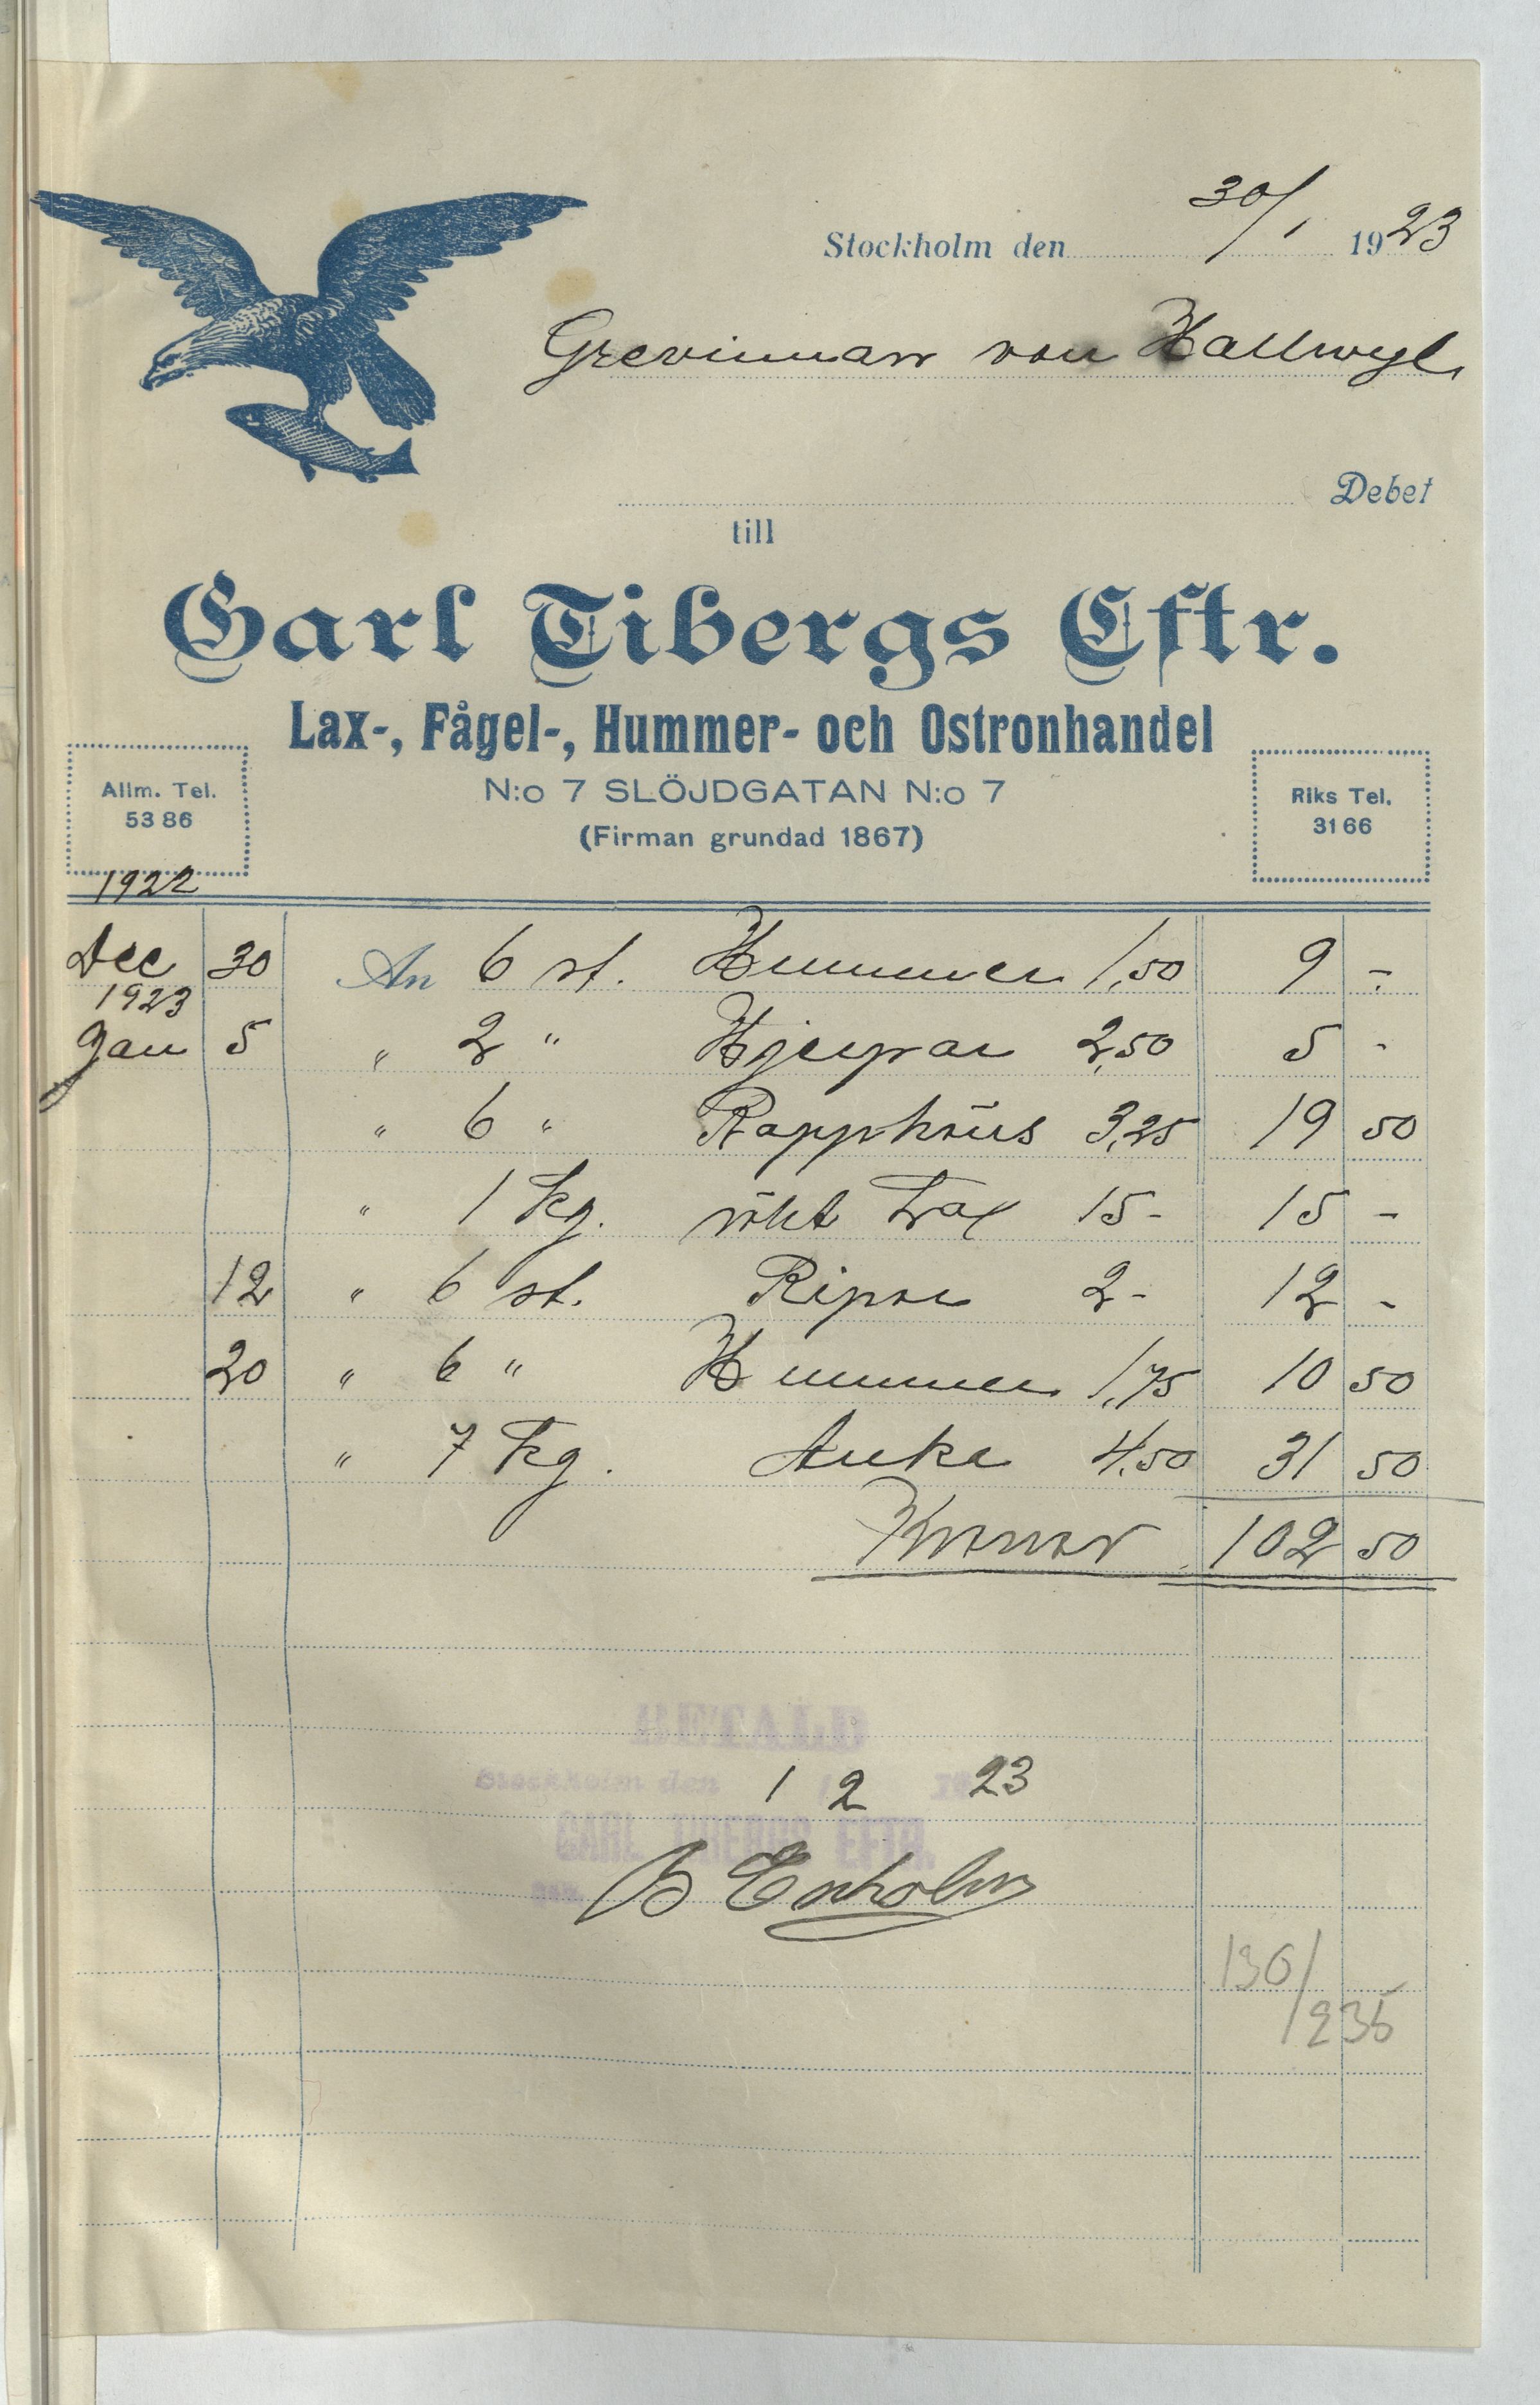 Stockholm den 30/1 1923
Grevinnan von Hallwyl
Debet
till
Carl Tibergs Eftr.
Lax-, Fågel-, Hummer- och Ostronhandel
N:o 7 SLÖJDGATAN N:o 7
(Firman grundad 1867)
Allm. Tel.
53 86
Riks Tel.
31 66
1922
Dec 30 An 6 st. Hummer 1,50 9 -
1923
Jan 5 " 2 " Hjerpar 2,50 5 -
" 6 " Rapphöns 3,25 19 50
" 1 kg. rökt Lax 15- 15 -
12 " 6 st. Ripor 2- 12 -
20 " 6 " Hummer 1,75 10 50
" 7 kg. 4,50 31 50
Kronor 102 50
BETALD
Stockholm den 1 2 1923
CARL TIBERGS EFTR.
B Enholm
136/235